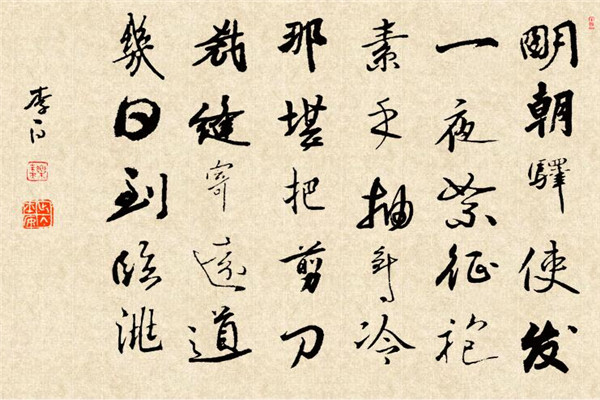 明朝驛使发
一夜絮征袍
素手抽針冷
那堪把剪刀
裁縫寄遠道
幾日到臨洮
李白